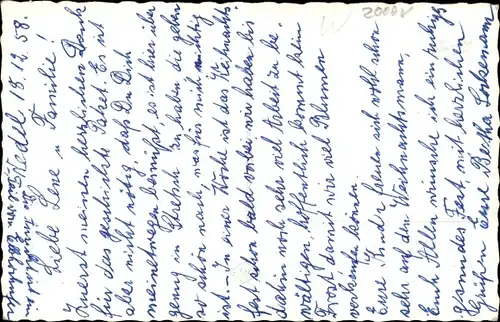 Bredel 15.12.58.
Liebe Lene u. Familie!
Zuerst meinen herzlichen Dank
für das geschickte Paket. Es ist
aber nicht nötig, daß Du Dich
meinetwegen bemühst, es ist hier aber
genug in zu haben die gehn
ist schön nach, was für mich wichtig
ist. In einer Woche ist das Weihnachts-
fest schon bald vorbei wir haben bis
dahin noch sehr viel Arbeit zu be-
wältigen, hoffentlich kommt kein
Frost damit wir viel Blumen
verkaufen können.
Eure Kinder freuen sich wohl schon
sehr auf den Weihnachtsmann,
Euch Allen wünsche ich ein ruhiges
gesundes Fest, mit herzlichen
Grüßen Eure Bertha
W 2000V